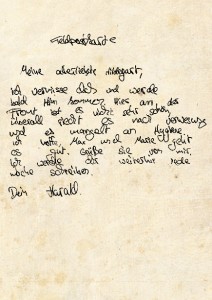 Feldpostkarte
Meine allerliebste Hildegart,
ich vermisse dich und werde
bald Heim kommen. Hier an der
Front ist es nicht sehr schön,
überall riecht es nach Verwesung
und es mangelt an Hygiene.
Ich hoffe, Max und Marie geht
es gut. Grüße sie von mir.
Ich werde dir weiterhin jede
Woche schreiben.
Dein Harald